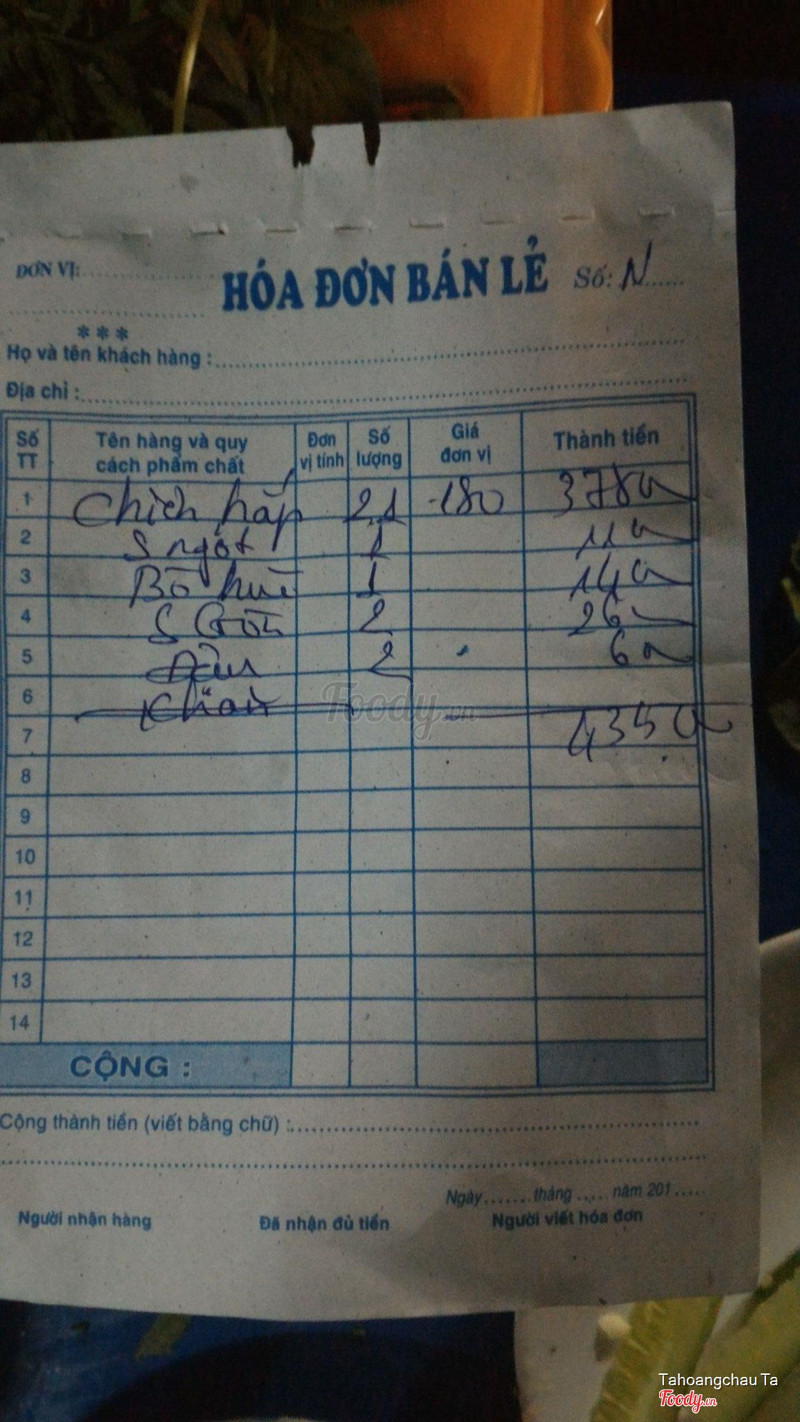 ĐƠN VỊ:
HÓA ĐƠN BÁN LẺ
Số: N
***
Họ và tên khách hàng :
Địa chỉ :
Số TT Tên hàng và quy cách phẩm chất Đơn vị tính Số lượng Giá đơn vị Thành tiền
1 Chích hấp 2,1 180 378
2 S ngọt 1 11
3 Bò huc 1 14
4 S Gòn 2 26
5 2 6
6 Khăn
7 435
8
9
10
11
12
13
14
CỘNG :
Cộng thành tiền (viết bằng chữ) :
Ngày tháng năm 201
Người nhận hàng Đã nhận đủ tiền Người viết hóa đơn
Foody.vn
Tahoangchau Ta
Foody.vn